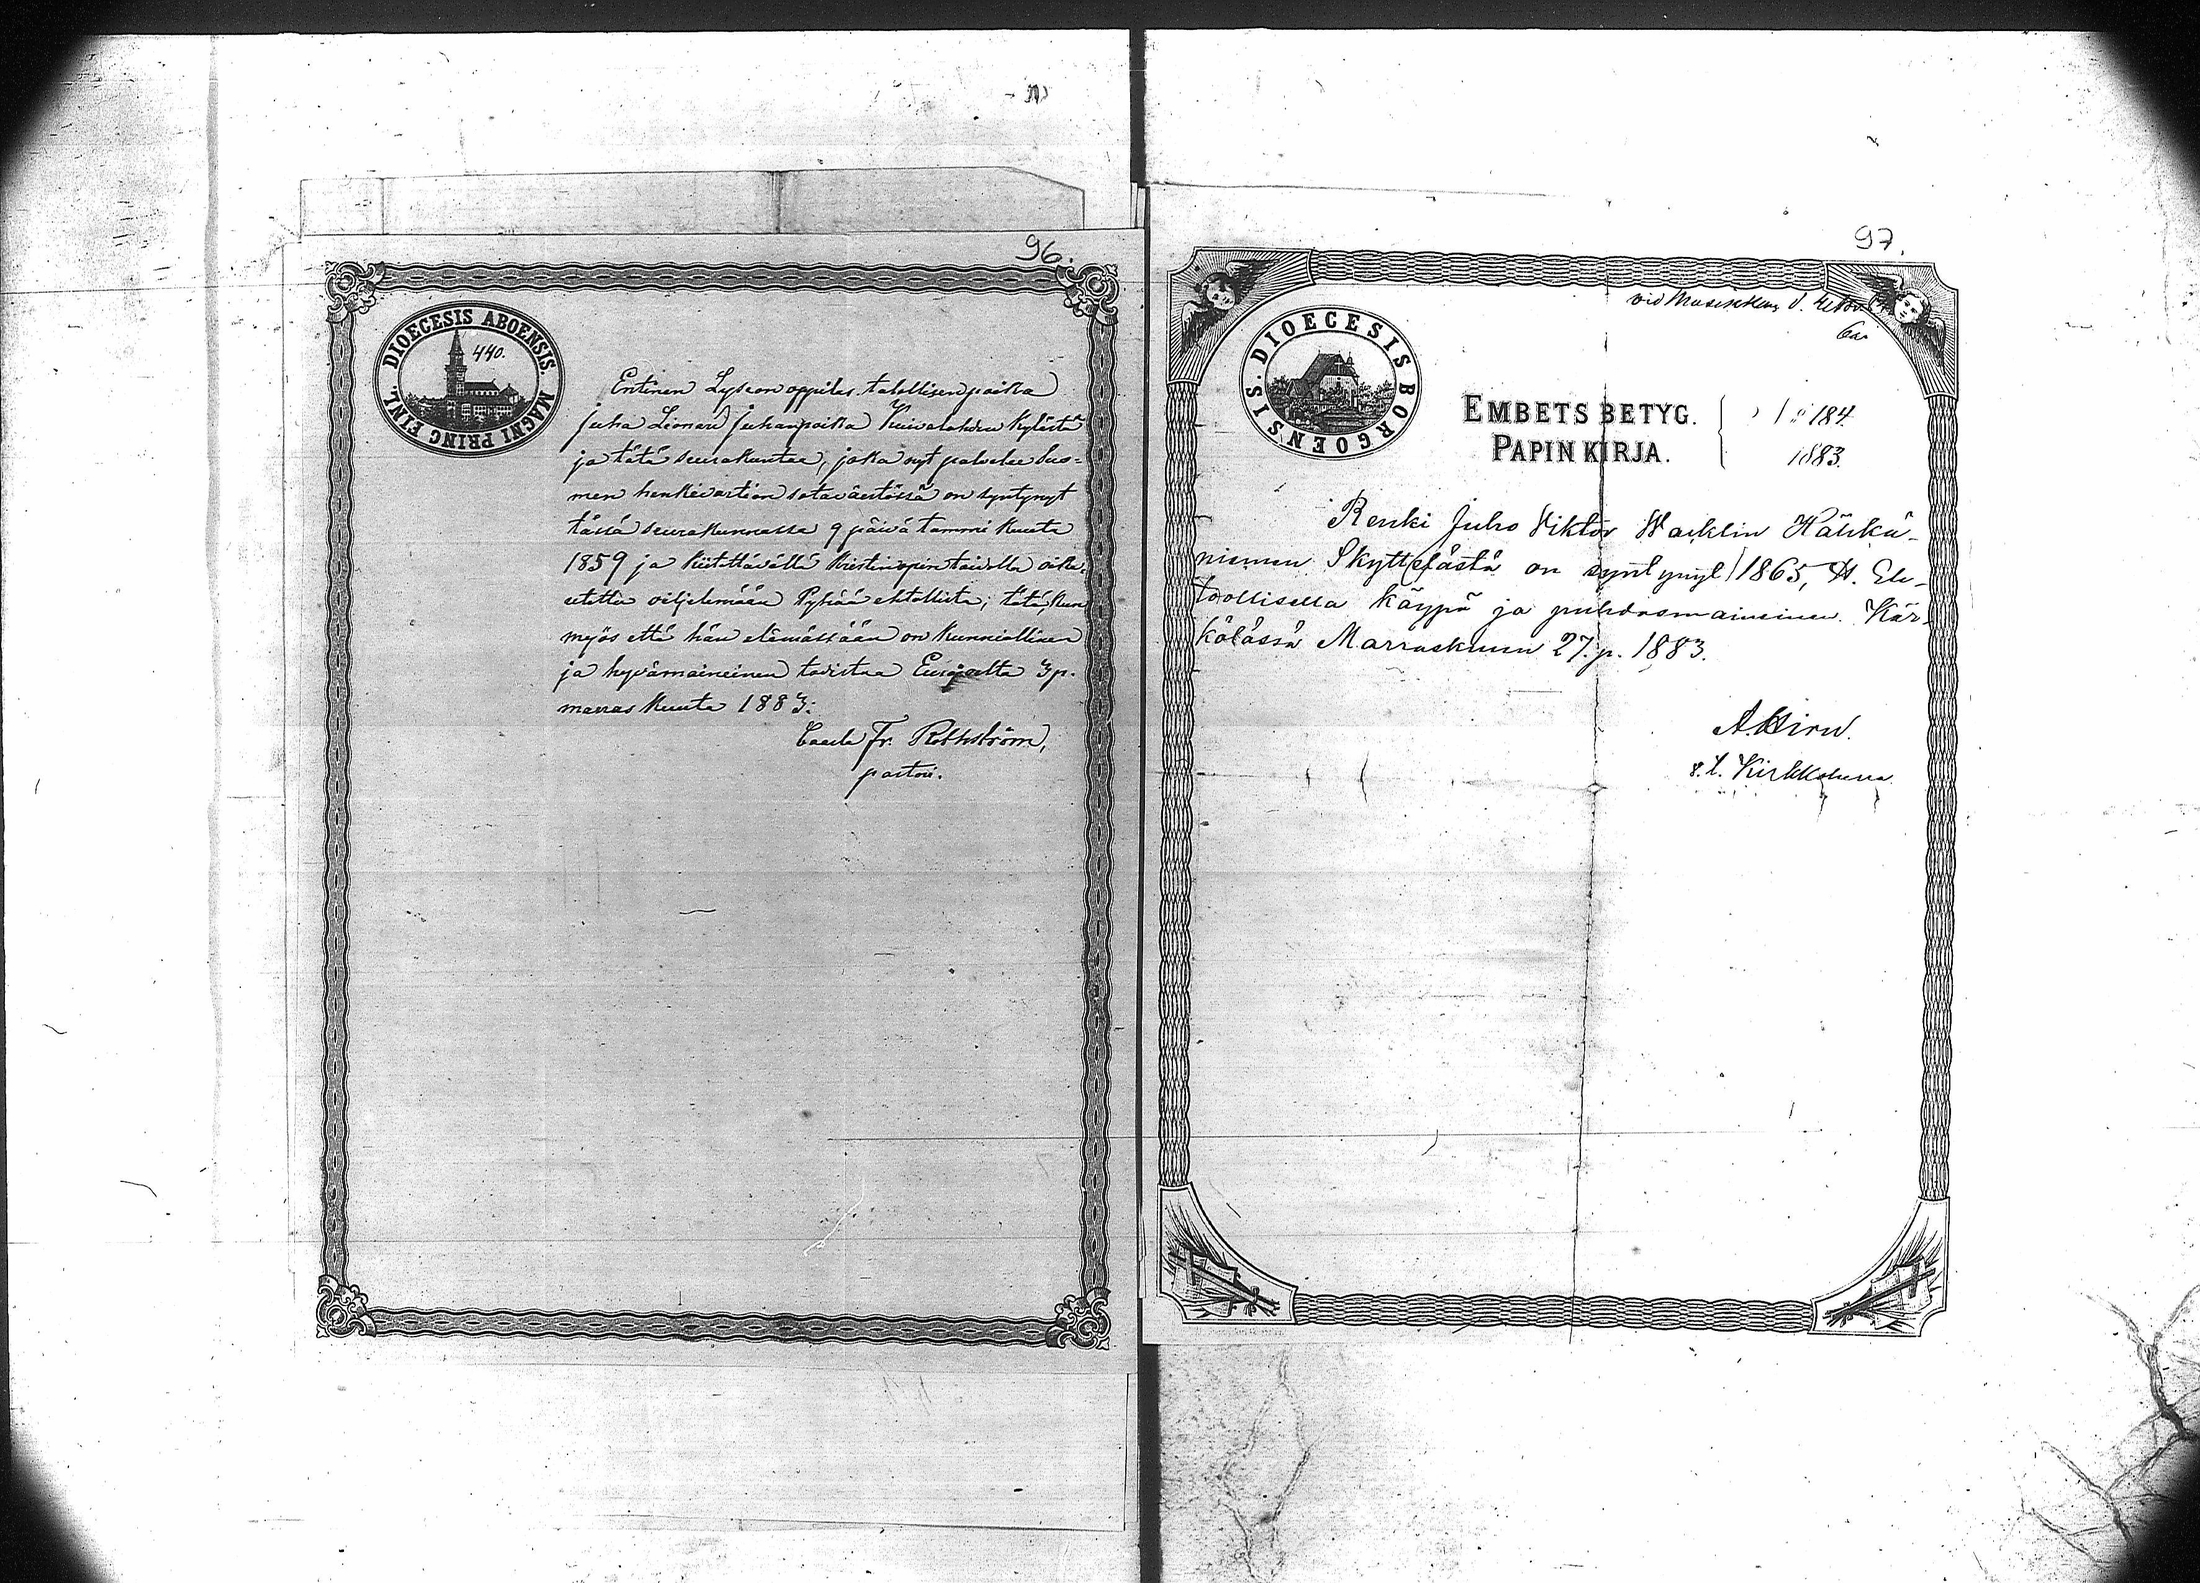 96.
DIOECESIS ABOENSIS. MAGNI PRINC FINL.
440.
Entinen Lyseon oppilas talollisen poika
Juha Leonard Juhanpoika Kuivalahden kylästä
ja tätä seurakuntaa, joka nyt palvelee Suo-
men henkivartion sotaväestössä on syntynyt
tässä seurakunnassa 9 päivä tammi kuuta
1859 ja kiitettävällä kristinopin taidolla oike-
utettu viljelemään Pyhää ehtollista; tätä, kun
myös että hän elämässään on kunniallinen
ja hyvämaineinen todistaa Eurajoelta 3 p.
marras kuuta 1883:
Fr. Rothström,
pastori.
97.
vid
DIOECESIS BORGOENSIS.
EMBETSBETYG. 184
PAPINKIRJA. 1883.
Renki Juho Viktor Wacklin Hähkä-
niemen Skyttelästä on syntynyt 1865, H. Eh-
toollisella käypä ja puhdasmaineinen. Kär-
kölässä Marraskuun 27. p. 1883.
A. Hirn.
v. t. Kirkkoherra